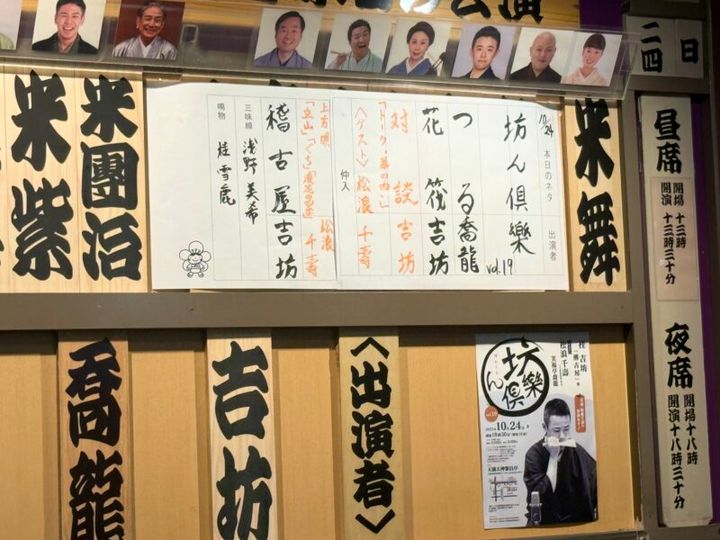 公演
二四日
昼席
開場 十三時
開演 十三時三十分
夜席
開場十八時
開演十八時三十分
米舞
米團治
米紫
10/24 本日のネタ 出演者
坊ん倶樂 vol.19
つる 喬龍
花筏 吉坊
対談 吉坊
「トーク・其の四」
〈ゲスト〉松浪千壽
仲入
上方唄 松浪千壽
稽古屋 吉坊
三味線 浅野美希
鳴物 桂雪鹿
〈出演者〉
吉坊
喬龍
坊ん倶樂
vol.19
桂吉坊
「稽古屋」
松浪千壽
笑福亭喬龍
10.24
天満天神繁昌亭